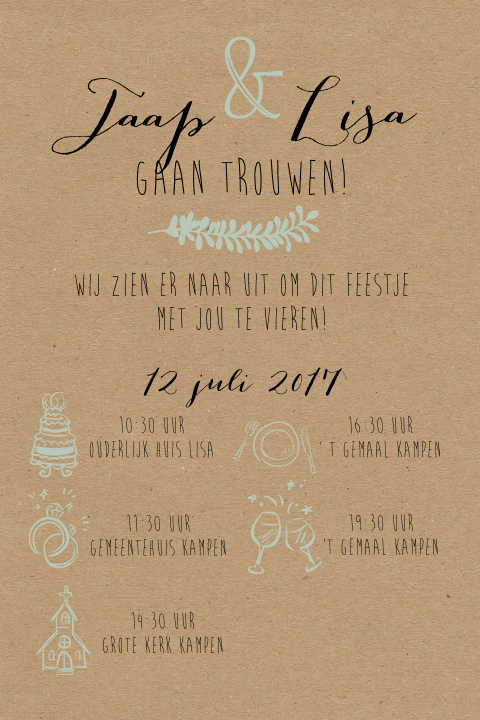 Jaap & Lisa
GAAN TROUWEN!
WIJ ZIEN ER NAAR UIT OM DIT FEESTJE
MET JOU TE VIEREN!
12 juli 2017
10:30 UUR
OUDERLIJK HUIS LISA
11:30 UUR
GEMEENTEHUIS KAMPEN
14:30 UUR
GROTE KERK KAMPEN
16:30 UUR
'T GEMAAL KAMPEN
19:30 UUR
'T GEMAAL KAMPEN